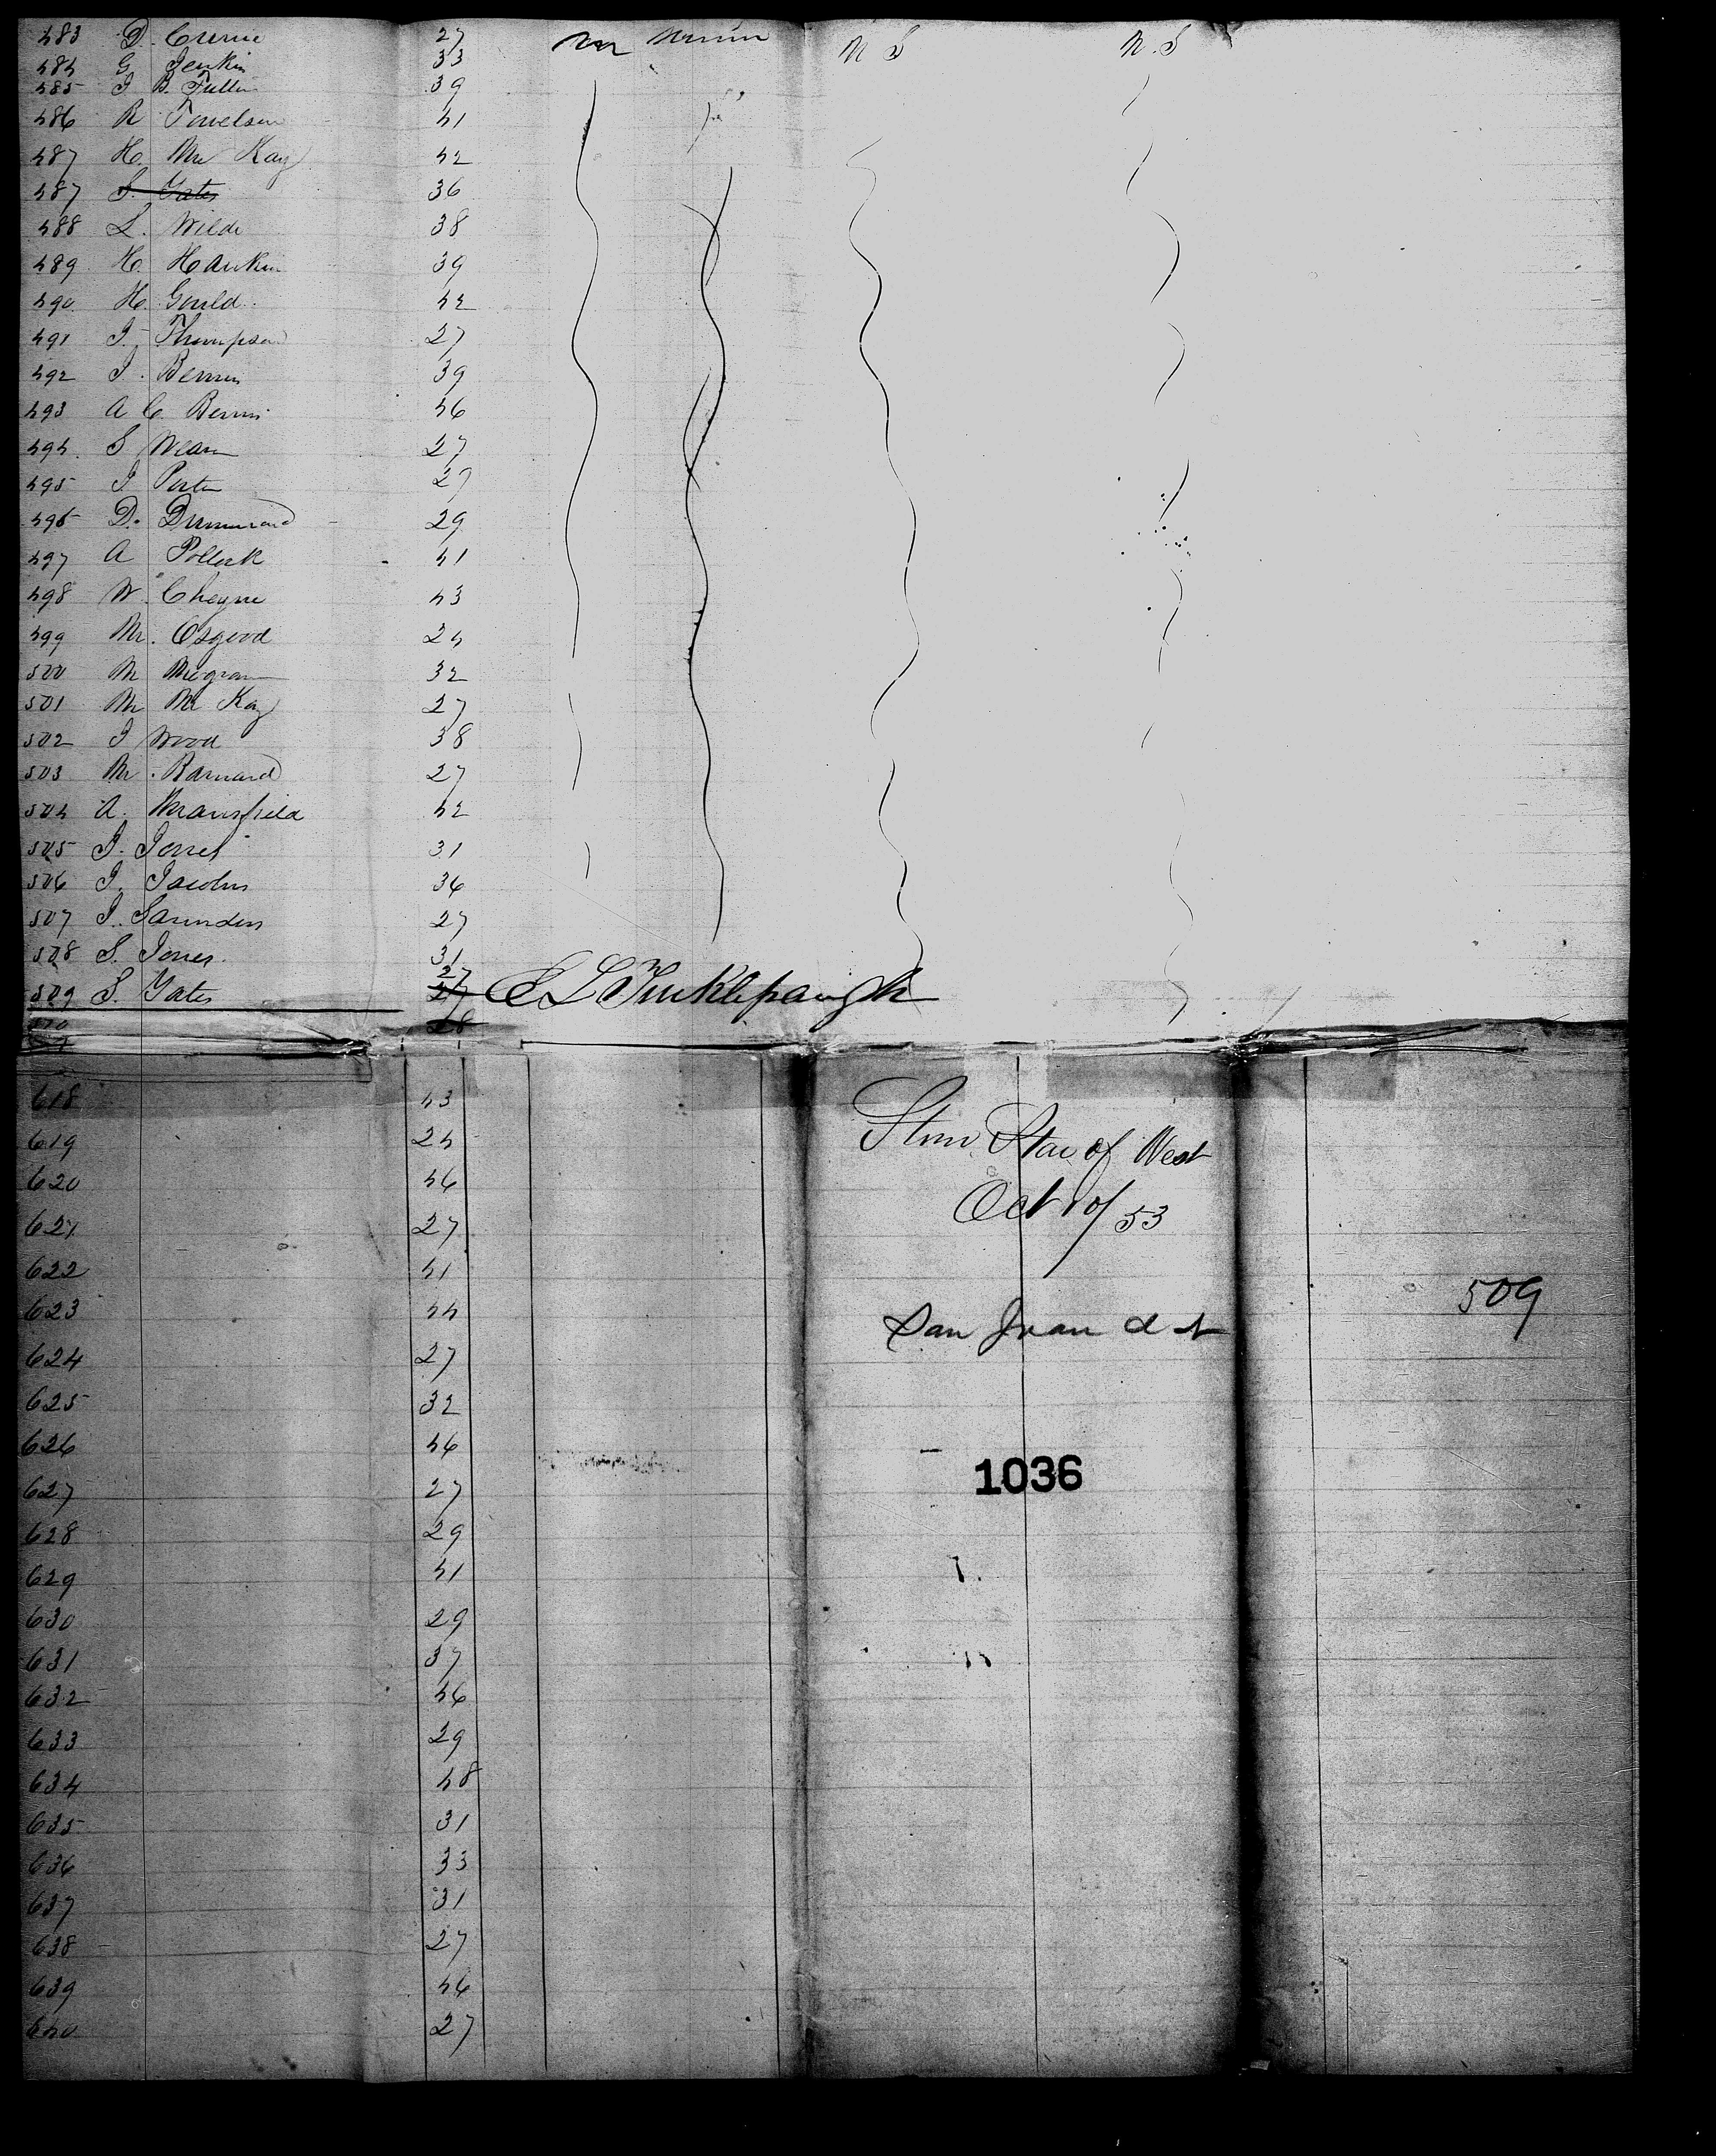 483 D. Currie 27 M S M. S
484 G Jenkin 33
485 J B. Fuller 39
486 R Towelson 41
487 H. Mc Kay 42
487 S. Yates 36
488 L. Wilde 38
489 H. Hankin 39
490 H. Gould 42
491 J. Thompson 27
492 J. Bemis 39
493 A C. Bemis 46
494 S Wear 27
495 J Porter 29
496 D. Drummond 29
497 A Pollock 41
498 W. Cheyne 43
499 M. Osgood 24
500 M 32
501 M Mc Kay 27
502 J Wood 38
503 M. Barnard 27
504 A. Mansfield 42
505 J. Jones 31
506 J. Jacobus 36
507 J. Saunders 27
508 S. Jones 31
509 S. Yates 27 E L Tinklepaugh
510 28
618 43
619 24 Stmr Star of West
620 46
621 27 Oct 10/53
622 41
623 44 509
San Juan
624 27
625 32
626 46
1036
627 27
628 29
629 41
630 29
631 37
632 46
633 29
634 48
635 31
636 33
637 31
638 27
639 46
640 27